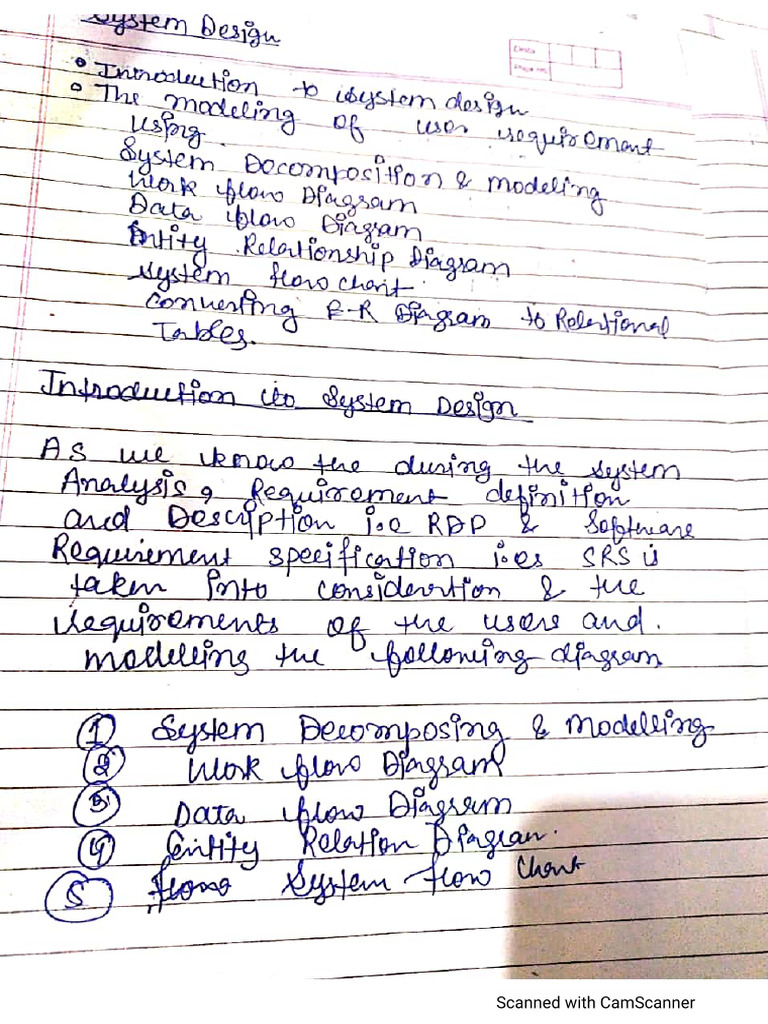 System Design
Introduction to system design
The modeling of user requirement
using
System Decomposition & modeling
Work flow Diagram
Data flow Diagram
Entity Relationship Diagram
System flow chart.
Converting E-R Diagram to Relational
Tables.
Introduction to System Design
As we know the during the system
Analysis, Requirement definition
and Description i.e RDD & Software
Requirement specification i.es SRS is
taken into consideration & the
requirements of the users and.
modelling the following diagram
1 System Decomposing & Modelling
2 Work flow Diagram
3 Data flow Diagram
4 Entity Relation Diagram.
5 System flow Chart
Scanned with CamScanner